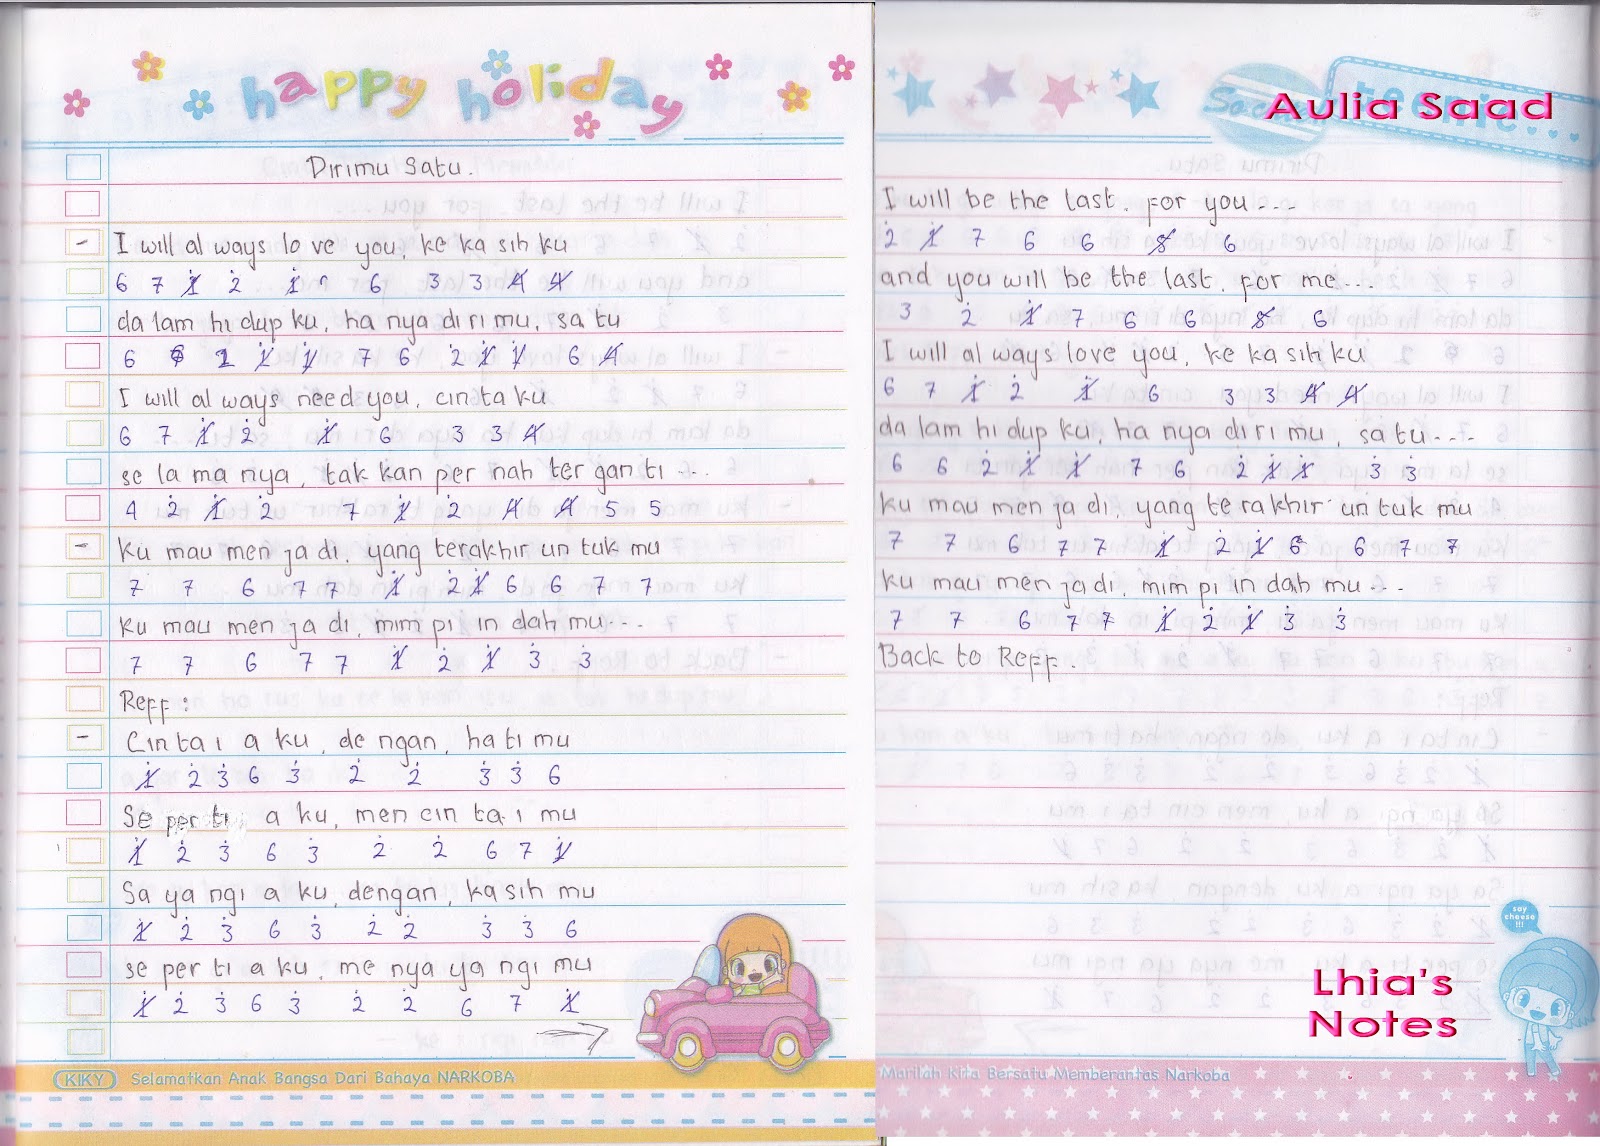 happy holiday
Dirimu Satu.
- I will al ways lo ve you, ke ka sih ku
6 7 1̇ 2̇ 1̇ 6 3 3 4 4
da lam hi dup ku, ha nya di ri mu, sa tu
6 6 2 1̇ 1̇ 7 6 2̇ 1̇ 1̇ 6 4
I will al ways need you, cin ta ku
6 7 1̇ 2̇ 1̇ 6 3 3 4
se la ma nya, tak kan per nah ter gan ti ...
4 2̇ 1̇ 2̇ 7 1̇ 2̇ 4 4 5 5
- ku mau men ja di, yang terakhir un tuk mu
7 7 6 7 7 1̇ 2̇ 1̇ 6 6 7 7
ku mau men ja di, mim pi in dah mu...
7 7 6 7 7 1̇ 2̇ 1̇ 3̇ 3̇
Reff :
- Cin ta i a ku, de ngan, ha ti mu
1̇ 2̇ 3̇ 6 3̇ 2̇ 2̇ 3̇ 3̇ 6
Se per ti a ku, men cin ta i mu
1̇ 2̇ 3̇ 6 3̇ 2̇ 2̇ 6 7 1̇
Sa ya ngi a ku, dengan, ka sih mu
1̇ 2̇ 3̇ 6 3̇ 2̇ 2̇ 3̇ 3̇ 6
se per ti a ku, me nya ya ngi mu
1̇ 2̇ 3̇ 6 3̇ 2̇ 2̇ 6 7 1̇
KIKY Selamatkan Anak Bangsa Dari Bahaya NARKOBA
Aulia Saad
I will be the last, for you ...
2̇ 1̇ 7 6 6 5 6
and you will be the last, for me...
3 2̇ 1̇ 7 6 6 5 6
I will al ways love you, ke ka sih ku
6 7 1̇ 2̇ 1̇ 6 3 3 4 4
da lam hi dup ku, ha nya di ri mu, sa tu ...
6 6 2̇ 1̇ 1̇ 7 6 2̇ 1̇ 1̇ 3̇ 3̇
ku mau men ja di, yang te rakhir un tuk mu
7 7 6 7 7 1̇ 2̇ 1̇ 6 6 7 7
ku mau men ja di, mim pi in dah mu ...
7 7 6 7 7 1̇ 2̇ 1̇ 3̇ 3̇
Back to Reff.
say cheese !!!
Lhia's
Notes
Marilah Kita Bersatu Memberantas Narkoba